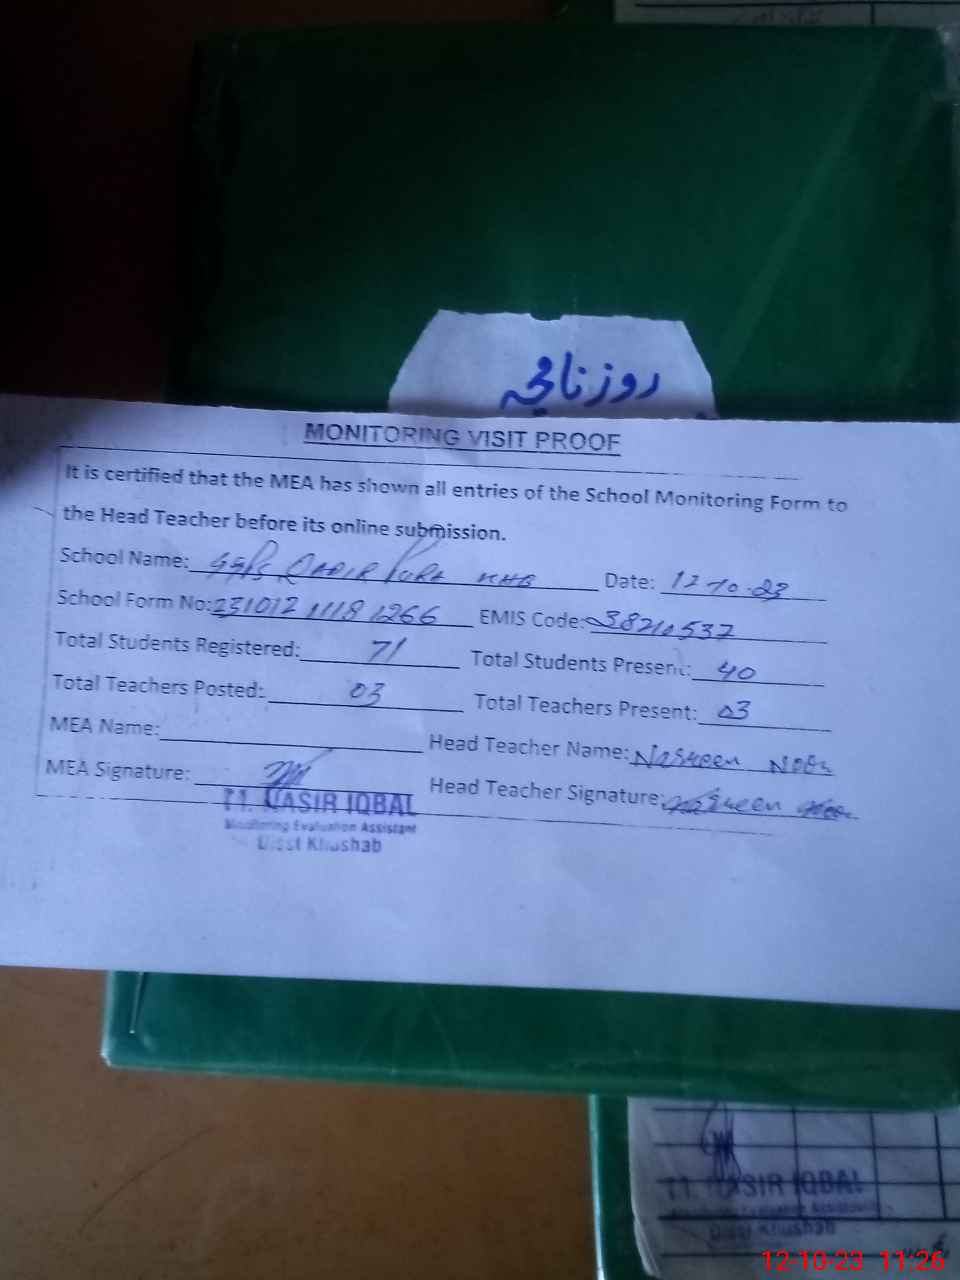 روزنامچہ
MONITORING VISIT PROOF
It is certified that the MEA has shown all entries of the School Monitoring Form to
the Head Teacher before its online submission.
School Name: GGPS QADIR PURA KHB Date: 12-10-23
School Form No: 231012 11181266 EMIS Code: 38210537
Total Students Registered: 71 Total Students Present: 40
Total Teachers Posted: 03 Total Teachers Present: 03
MEA Name: Head Teacher Name: Nasreen Noor
MEA Signature: Head Teacher Signature: Nasreen Noor
M. NASIR IQBAL
Monitoring Evaluation Assistant
Distt Khushab
M. NASIR IQBAL
Distt Khushab
12-10-23 11:26